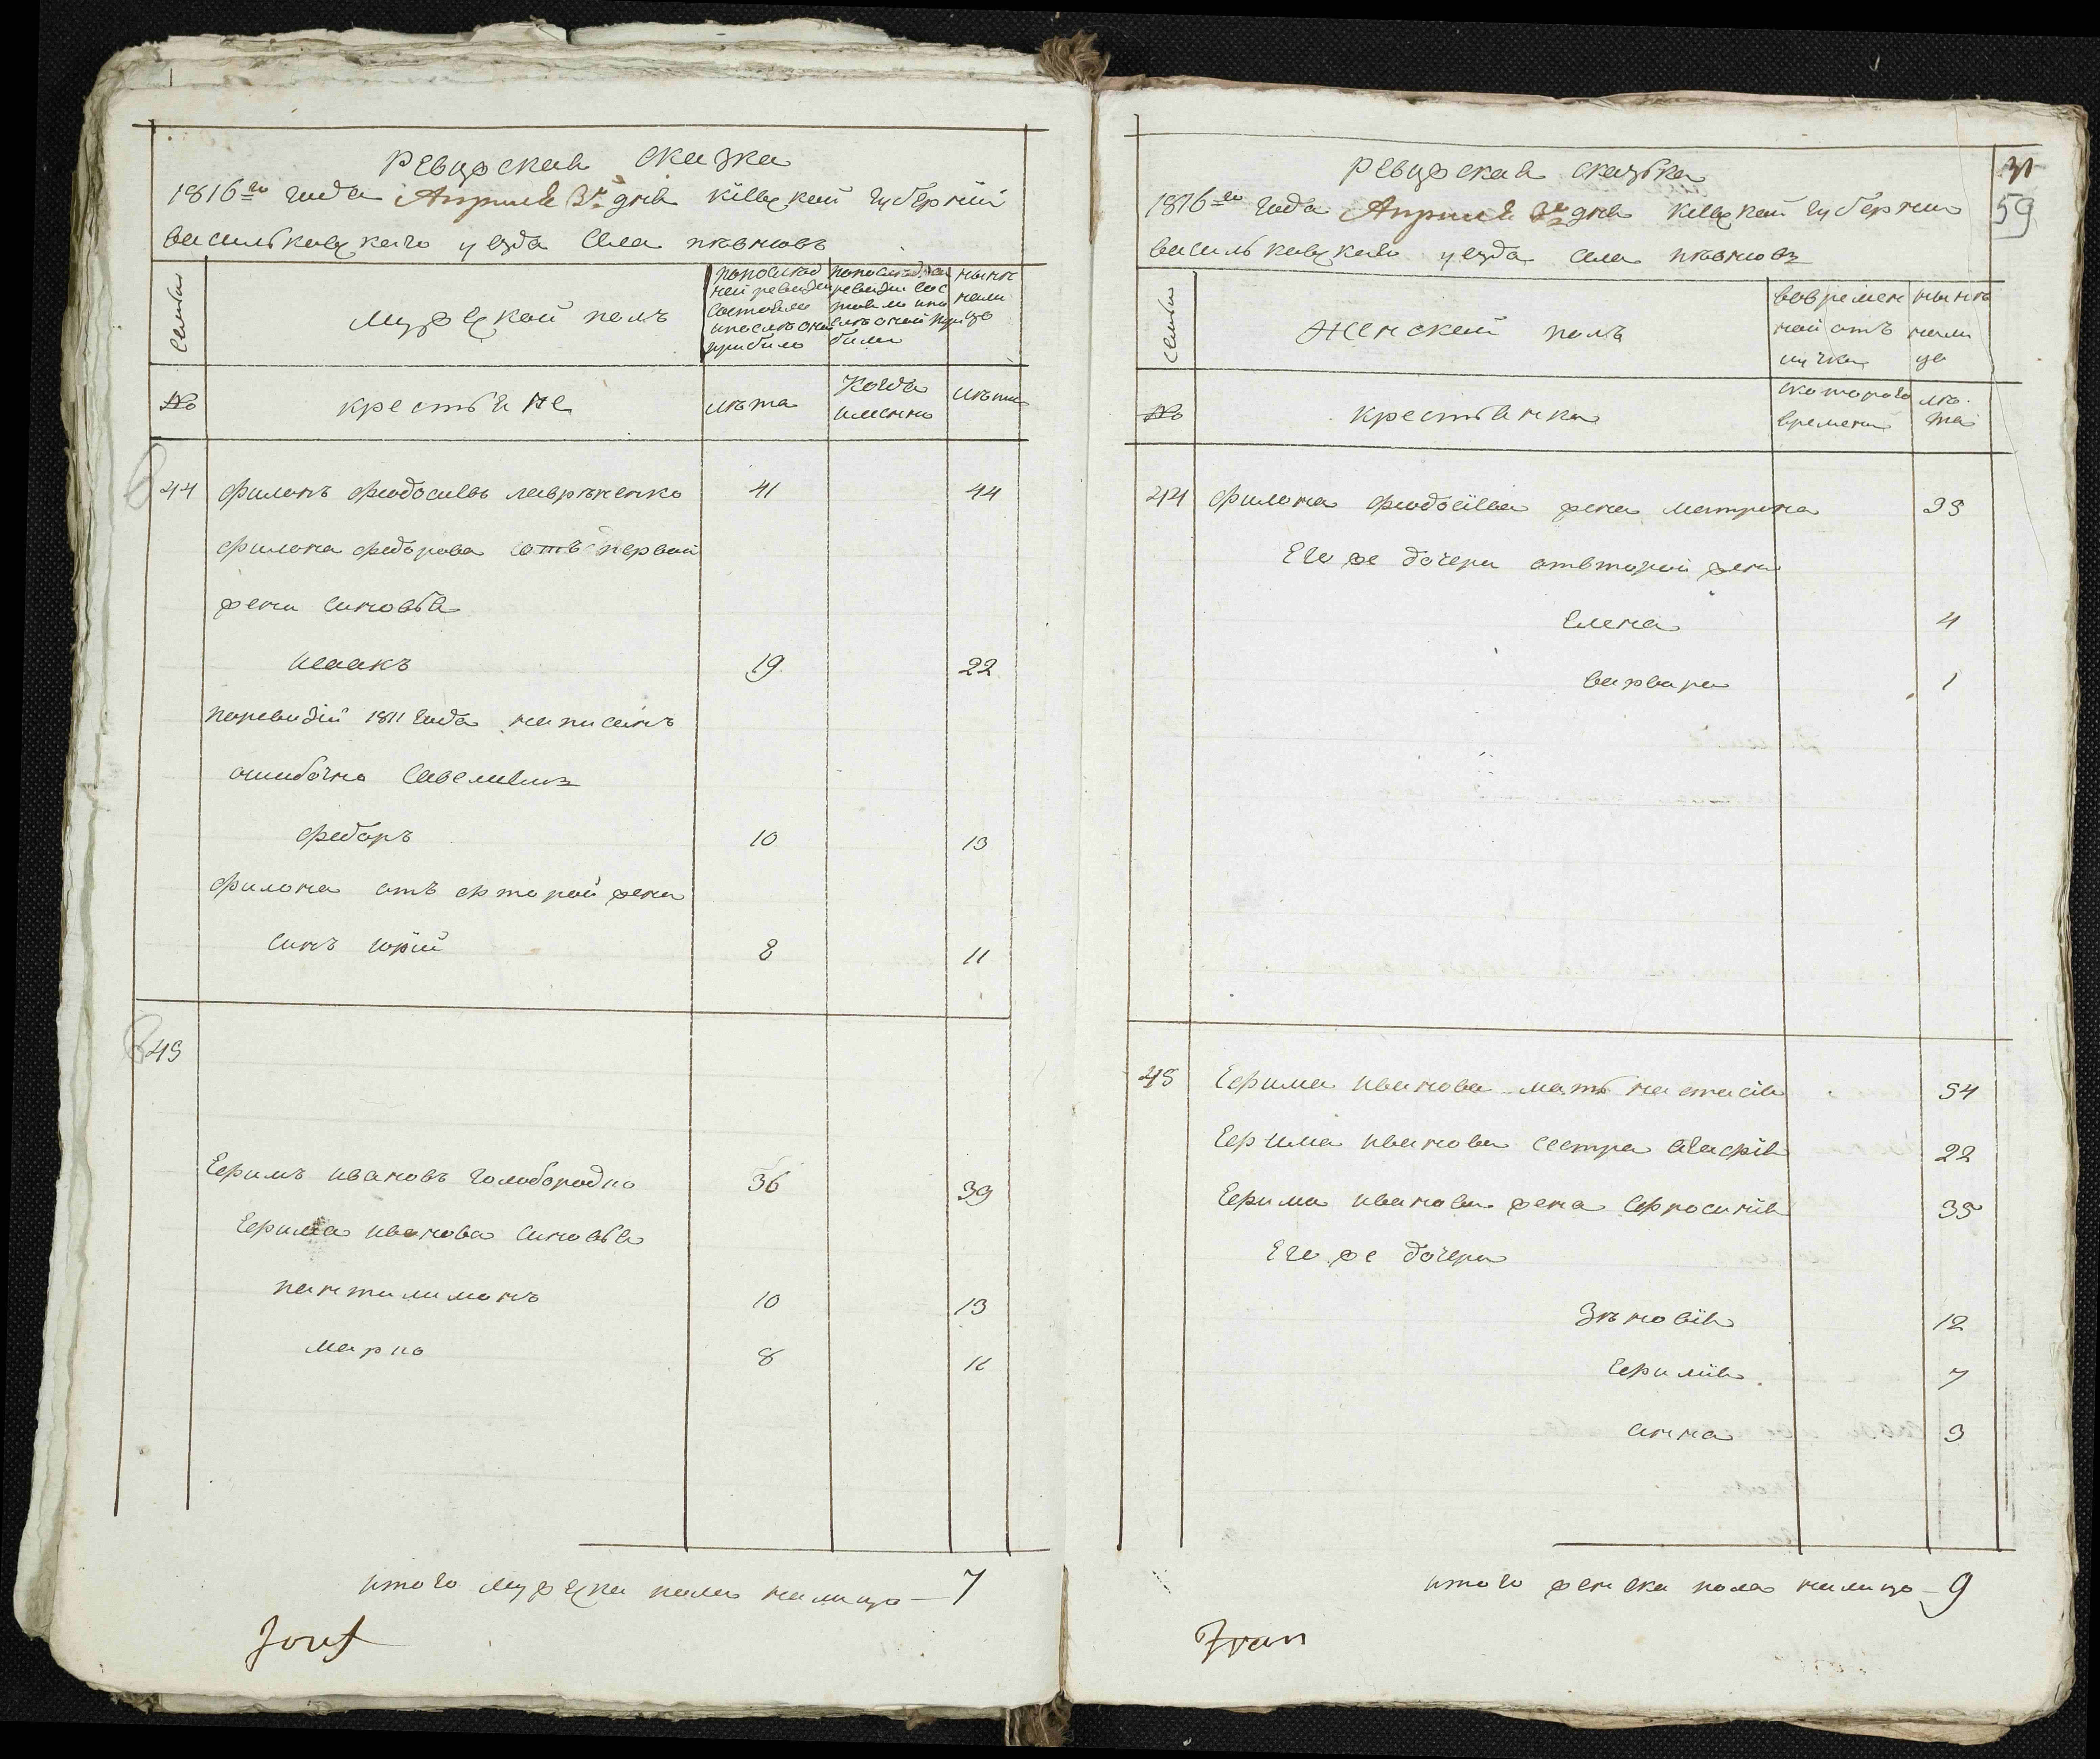 Ревизская сказка
1816го года Апреля 3го дня киевской губерніи
васильковскаго уезда села пѣвновъ
Семьи
Мужеской полъ
лѣта
когда именно
лѣта
№
крестьяне
44 Филонъ Феодосиевъ лаврѣненко 41 44
филона федорова отъ первой
жени синовья
исаакъ 19 22
поревизіи 1811 года написанъ
ошибочно Савелиемъ
федоръ 10 13
филона отъ фторой жени
синъ юрій 8 11
45
Ефимъ ивановъ голобородко 36 39
Ефима иванова синовья
пантилимонъ 10 13
марко 8 11
итого мужеска пола налицо — 7
Josef
31
59
Ревизская сказька
1816го года Апреля 3го дня киевской губернии
васильковскаго уезда села пѣвновъ
Семьи
Женской полъ
вовремен ной отлучки
нынѣ налицо
№
крестьянки
скоторого времени
лѣта
44 Филона Феодосіева жена матрина 33
Его же дочери отвторой жени
Елена 4
варвара 1
45 Ефима иванова мать настасія 54
Ефима иванова сестра агафія 22
Ефима иванова жена Ефросинія 35
Его же дочери
Зѣновія 12
Ефимія 7
анна 3
итого женска пола налицо — 9
Jvan